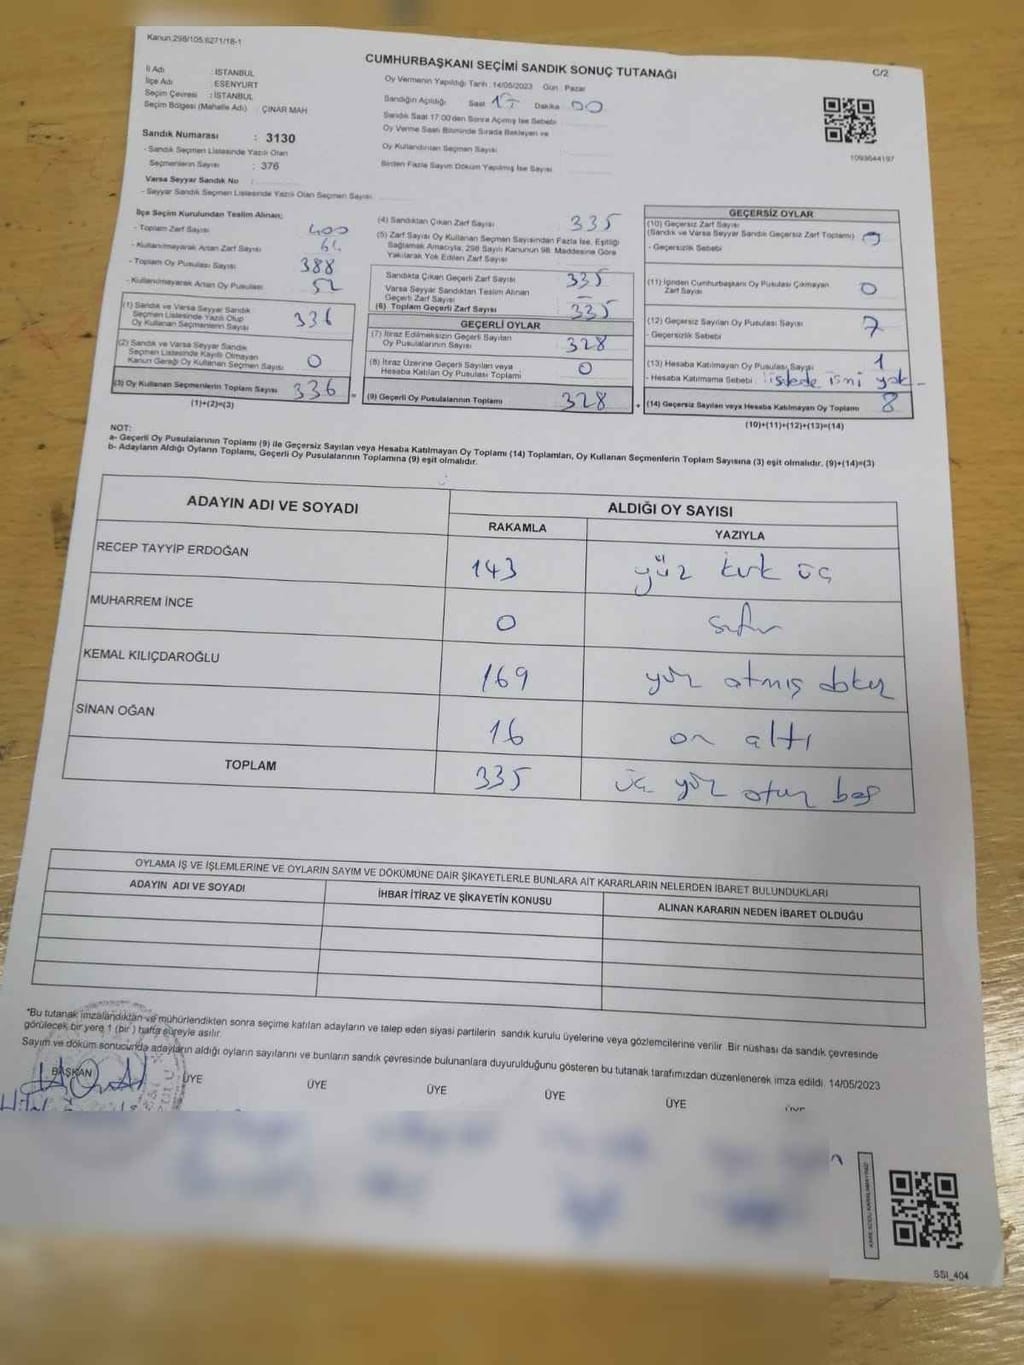 Kanun.298/105.6271/18-1
CUMHURBAŞKANI SEÇİMİ SANDIK SONUÇ TUTANAĞI
C/2
İl Adı : İSTANBUL
İlçe Adı : ESENYURT
Seçim Çevresi : İSTANBUL
Seçim Bölgesi (Mahalle Adı) : ÇINAR MAH
Oy Vermenin Yapıldığı Tarih :14/05/2023 Gün : Pazar
Sandığın Açıldığı Saat 17 Dakika 00
Sandık Saat 17.00'den Sonra Açılmış İse Sebebi
Oy Verme Saati Bitiminde Sırada Bekleyen ve
Oy Kullandırılan Seçmen Sayısı
Birden Fazla Sayım Döküm Yapılmış İse Sayısı
1093644197
Sandık Numarası : 3130
- Sandık Seçmen Listesinde Yazılı Olan
Seçmenlerin Sayısı : 376
Varsa Seyyar Sandık No :
- Seyyar Sandık Seçmen Listesinde Yazılı Olan Seçmen Sayısı
İlçe Seçim Kurulundan Teslim Alınan;
- Toplam Zarf Sayısı 400
- Kullanılmayarak Artan Zarf Sayısı 64
- Toplam Oy Pusulası Sayısı 388
- Kullanılmayarak Artan Oy Pusulası 52
(1) Sandık ve Varsa Seyyar Sandık
Seçmen Listesinde Yazılı Olup
Oy Kullanan Seçmenlerin Sayısı 336
(2) Sandık ve Varsa Seyyar Sandık
Seçmen Listesinde Kayıtlı Olmayan
Kanun Gereği Oy Kullanan Seçmen Sayısı 0
(3) Oy Kullanan Seçmenlerin Toplam Sayısı 336
(1)+(2)=(3)
(4) Sandıktan Çıkan Zarf Sayısı 335
(5) Zarf Sayısı Oy Kullanan Seçmen Sayısından Fazla İse, Eşitliği
Sağlamak Amacıyla, 298 Sayılı Kanunun 98. Maddesine Göre
Yakılarak Yok Edilen Zarf Sayısı
Sandıkta Çıkan Geçerli Zarf Sayısı 335
Varsa Seyyar Sandıktan Teslim Alınan
Geçerli Zarf Sayısı –
(6) Toplam Geçerli Zarf Sayısı 335
GEÇERLİ OYLAR
(7) İtiraz Edilmeksizin Geçerli Sayılan
Oy Pusulalarının Sayısı 328
(8) İtiraz Üzerine Geçerli Sayılan veya
Hesaba Katılan Oy Pusulası Toplamı 0
(9) Geçerli Oy Pusulalarının Toplamı 328
GEÇERSİZ OYLAR
(10) Geçersiz Zarf Sayısı
(Sandık ve Varsa Seyyar Sandık Geçersiz Zarf Toplamı) 0
- Geçersizlik Sebebi
(11) İçinden Cumhurbaşkanı Oy Pusulası Çıkmayan
Zarf Sayısı 0
(12) Geçersiz Sayılan Oy Pusulası Sayısı 7
- Geçersizlik Sebebi
(13) Hesaba Katılmayan Oy Pusulası Sayısı 1
- Hesaba Katılmama Sebebi : listede ismi yok
(14) Geçersiz Sayılan veya Hesaba Katılmayan Oy Toplamı 8
(10)+(11)+(12)+(13)=(14)
NOT:
a- Geçerli Oy Pusulalarının Toplamı (9) ile Geçersiz Sayılan veya Hesaba Katılmayan Oy Toplamı (14) Toplamları, Oy Kullanan Seçmenlerin Toplam Sayısına (3) eşit olmalıdır. (9)+(14)=(3)
b- Adayların Aldığı Oyların Toplamı, Geçerli Oy Pusulalarının Toplamına (9) eşit olmalıdır.
ADAYIN ADI VE SOYADI
ALDIĞI OY SAYISI
RAKAMLA YAZIYLA
RECEP TAYYİP ERDOĞAN 143 yüz kırk üç
MUHARREM İNCE 0 sıfır
KEMAL KILIÇDAROĞLU 169 yüz atmış dokuz
SİNAN OĞAN 16 on altı
TOPLAM 335 üç yüz otuz beş
OYLAMA İŞ VE İŞLEMLERİNE VE OYLARIN SAYIM VE DÖKÜMÜNE DAİR ŞİKAYETLERLE BUNLARA AİT KARARLARIN NELERDEN İBARET BULUNDUKLARI
ADAYIN ADI VE SOYADI İHBAR İTİRAZ VE ŞİKAYETİN KONUSU ALINAN KARARIN NEDEN İBARET OLDUĞU
*Bu tutanak imzalandıktan ve mühürlendikten sonra seçime katılan adayların ve talep eden siyasi partilerin sandık kurulu üyelerine veya gözlemcilerine verilir. Bir nüshası da sandık çevresinde
görülecek bir yere 1 (bir) hafta süreyle asılır.
Sayım ve döküm sonucunda adayların aldığı oyların sayılarını ve bunların sandık çevresinde bulunanlara duyurulduğunu gösteren bu tutanak tarafımızdan düzenlenerek imza edildi. 14/05/2023
BAŞKAN ÜYE ÜYE ÜYE ÜYE ÜYE
SSI_404